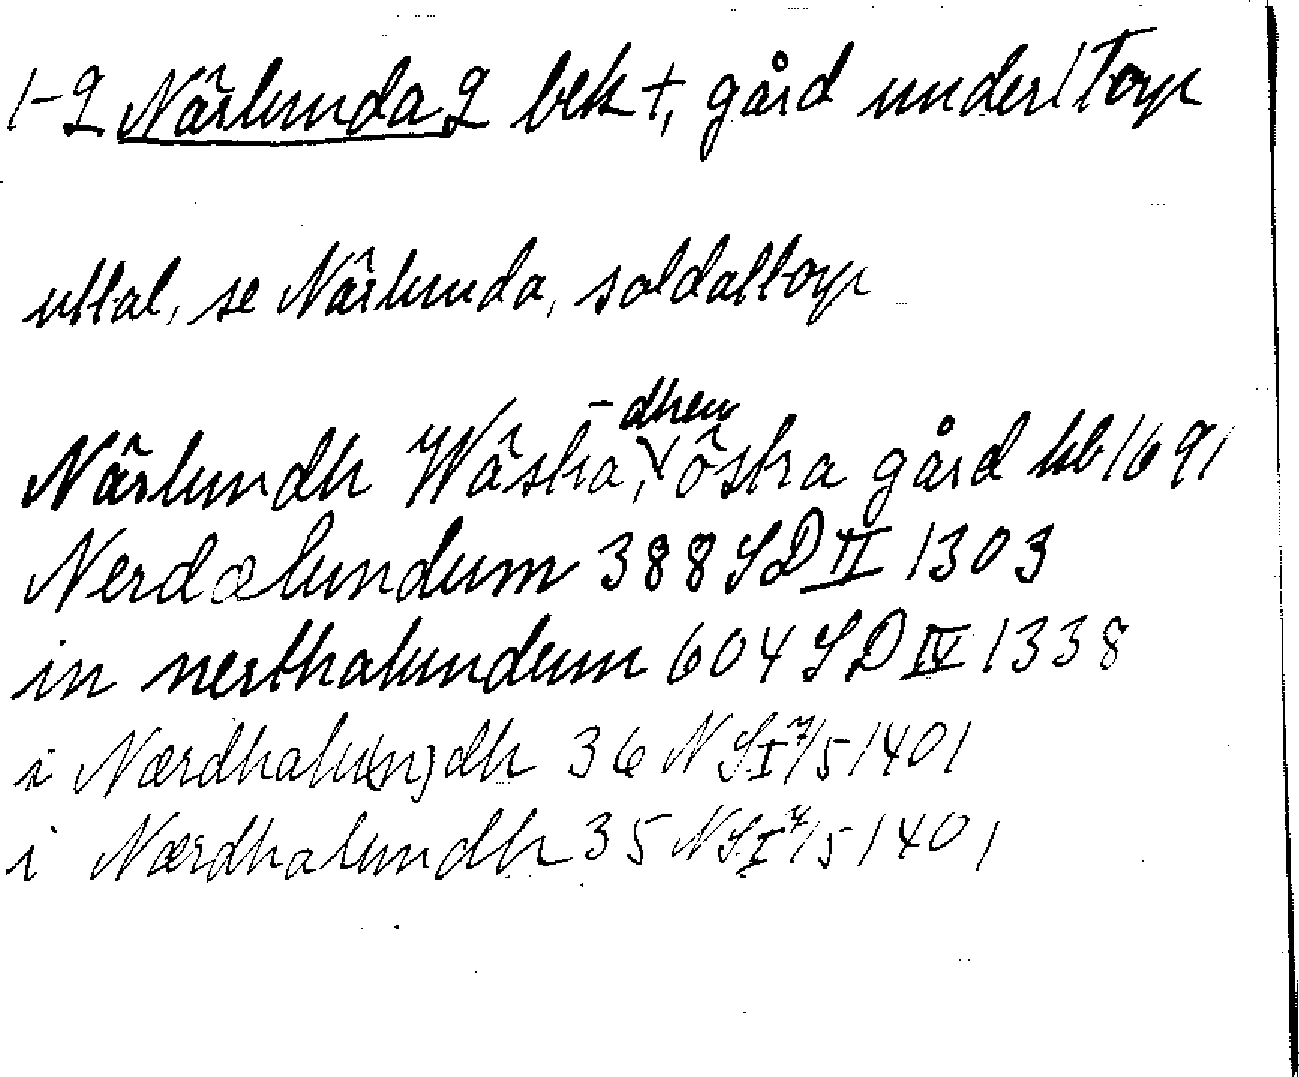 1-2 Närlunda 2 bek †, gård under 1 Torp
uttal, se Närlunda, soldattorp
-dhen
Närlundh Wästra, östra gård kb 1691
Nerdælundum 388 SD II 1303
in nerthalundum 604 SD IV 1338
i Nærdhalu(n)dh 36 NS I 7/5 1401
i Nærdhalundh 35 NS I 7/5 1401